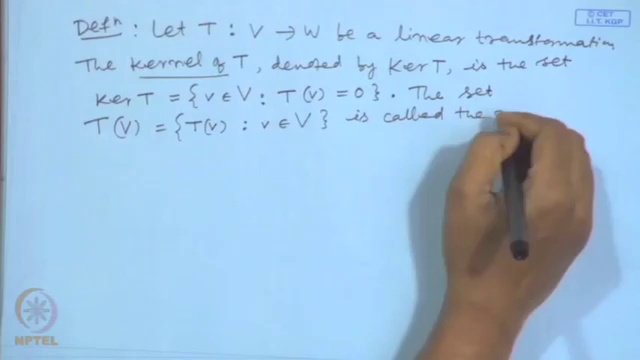 © CET
I.I.T. KGP
Defⁿ : Let T : V → W be a linear transformation
The kernel of T, denoted by Ker T, is the set
Ker T = { v ∈ V : T(v) = 0 } . The set
T(V) = { T(v) : v ∈ V } is called the
NPTEL